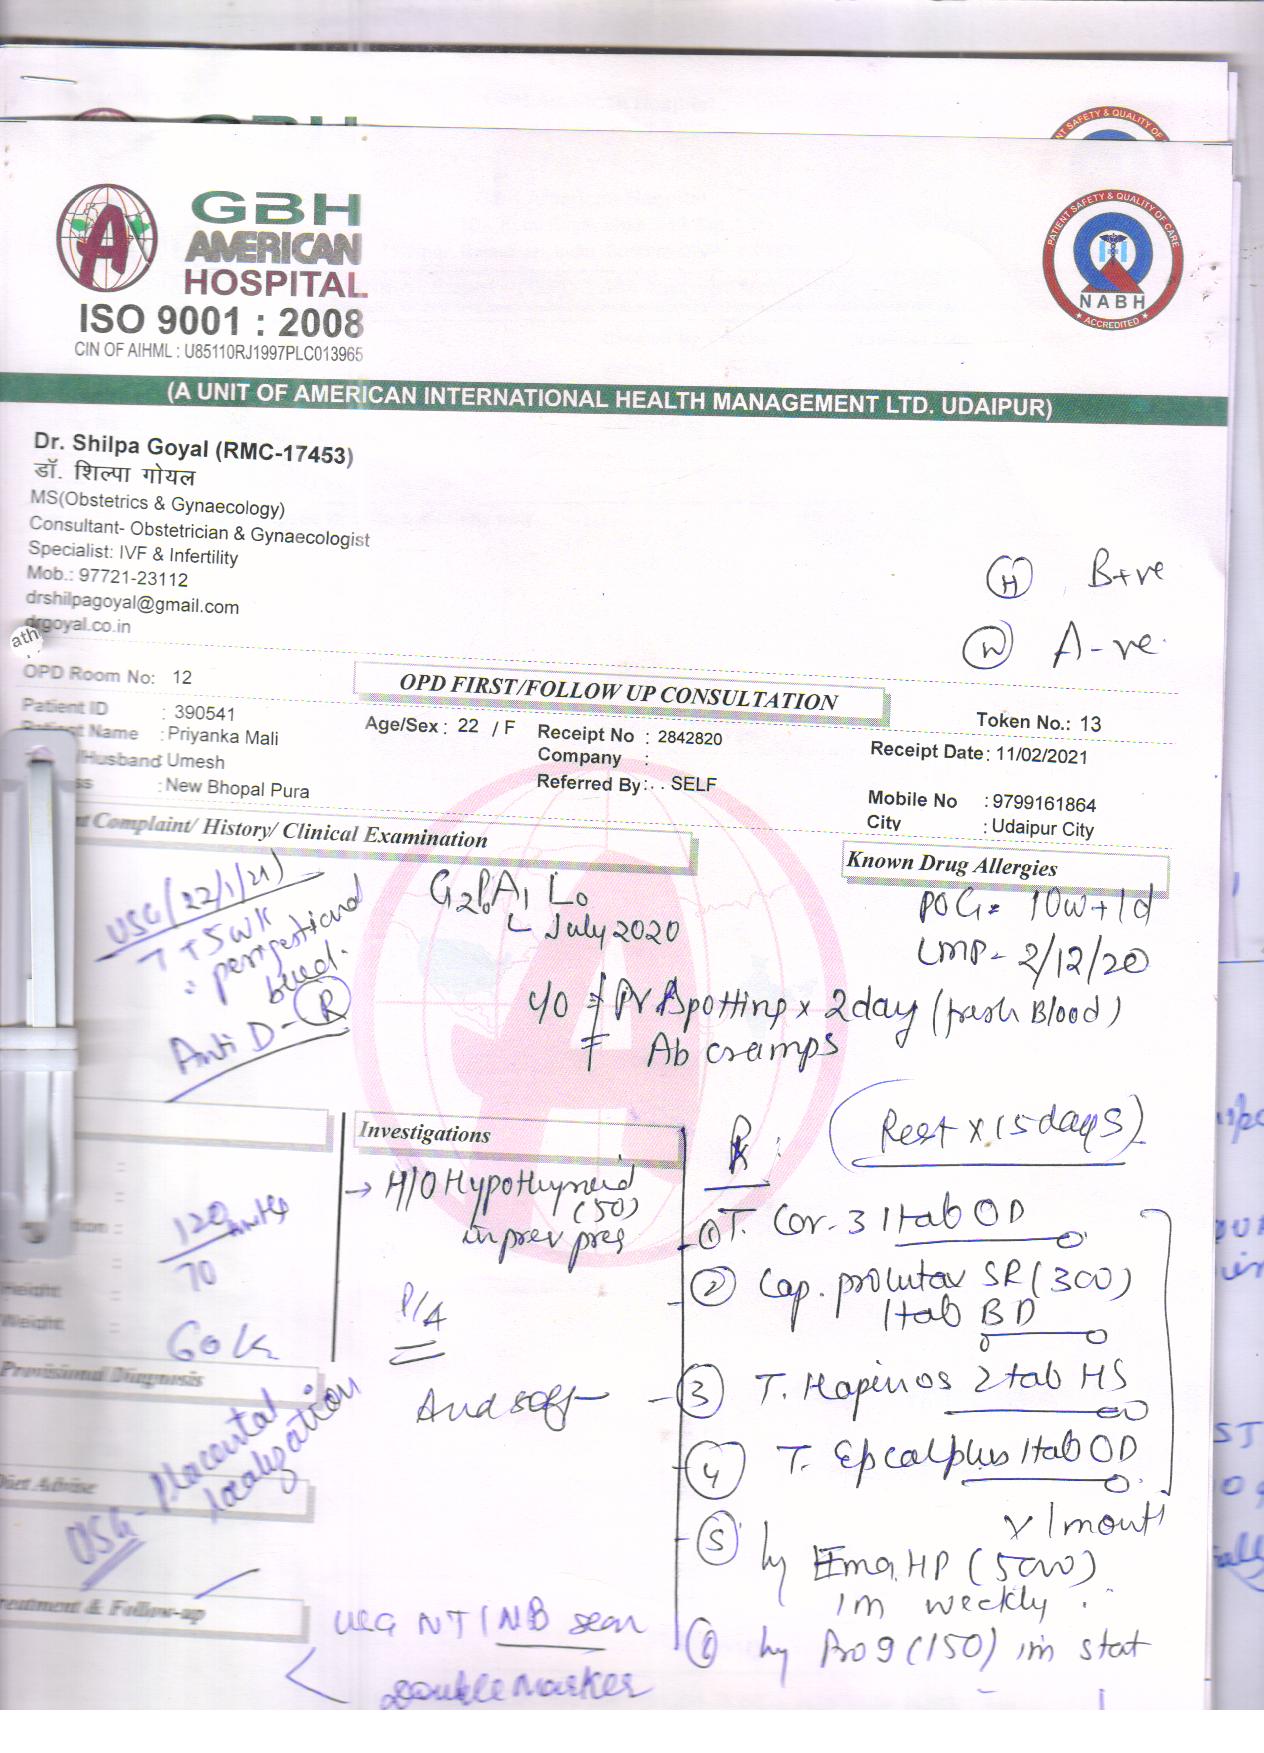 GBH
AMERICAN
HOSPITAL
ISO 9001 : 2008
CIN OF AIHML : U85110RJ1997PLC013965
PATIENT SAFETY & QUALITY OF CARE
NABH
ACCREDITED
(A UNIT OF AMERICAN INTERNATIONAL HEALTH MANAGEMENT LTD. UDAIPUR)
Dr. Shilpa Goyal (RMC-17453)
डॉ. शिल्पा गोयल
MS(Obstetrics & Gynaecology)
Consultant- Obstetrician & Gynaecologist
Specialist: IVF & Infertility
Mob.: 97721-23112
drshilpagoyal@gmail.com
drgoyal.co.in
ath
(H) B+ve
(W) A-ve
OPD Room No: 12
OPD FIRST/FOLLOW UP CONSULTATION
Token No.: 13
Patient ID : 390541
Age/Sex : 22 / F
Receipt No : 2842820
Receipt Date: 11/02/2021
Patient Name : Priyanka Mali
Company :
/Husband: Umesh
Referred By: . . SELF
: New Bhopal Pura
Mobile No : 9799161864
City : Udaipur City
Complaint/ History/ Clinical Examination
Known Drug Allergies
USG (22/1/21)
G2P0A1 L0
July 2020
POG = 10w+1d
LMP - 2/12/20
perigestational
bleed.
Anti D - (R)
c/o PV spotting x 2day (fresh Blood)
Ab cramps
Investigations
→ H/O Hypothyroid
(50)
in prev preg
Rx :
(Rest x 15 days)
120 mmHg
70
60 k
P/A
And soft
① T. Cor-3 1tab OD
② Cap. prolutav SR (300)
1tab BD
③ T. Hapinos 2tab HS
④ T. Epcalplus 1tab OD
x 1 month
⑤ Hy Ema HP (5000)
im weekly
⑥ Hy Rog (150) im stat
Height :
Weight :
Provisional Diagnosis
Diet Advise
USG - Placental
localization
Treatment & Follow-up
USG NT/NB scan
Double Marker